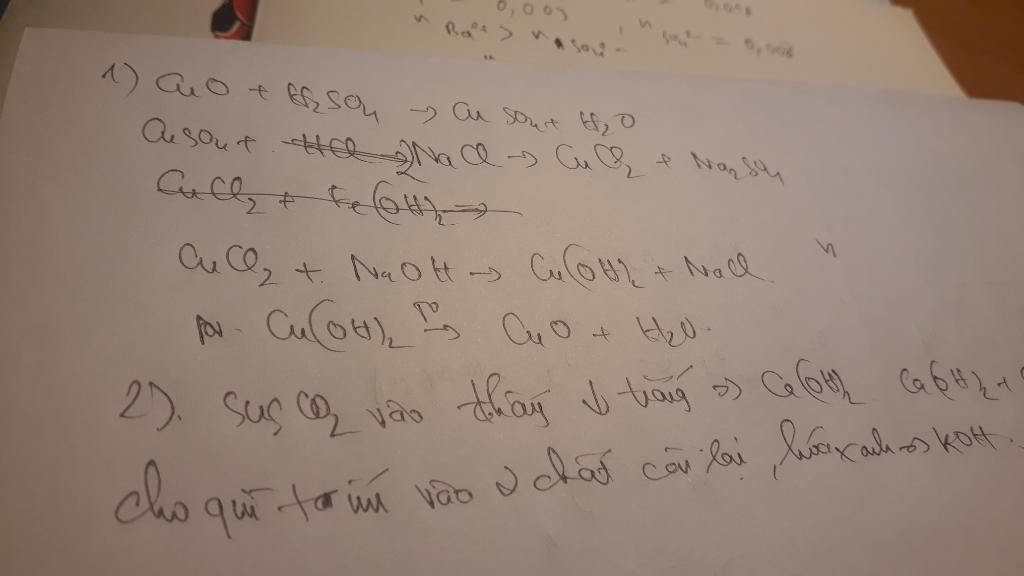 0,003
n Ba²⁺ > n SO₄²⁻
= 0,008
1) CuO + H₂SO₄ → CuSO₄ + H₂O
CuSO₄ + 2NaCl → CuCl₂ + Na₂SO₄
CuCl₂ + Fe(OH)₂ →
CuCl₂ + NaOH → Cu(OH)₂ + NaCl
Cu(OH)₂ t⁰→ CuO + H₂O
2). sục CO₂ vào thấy ↓ trắng => Ca(OH)₂ Ca(OH)₂ +
cho quì tím vào 2 chất còn lại, hóa xanh => KOH